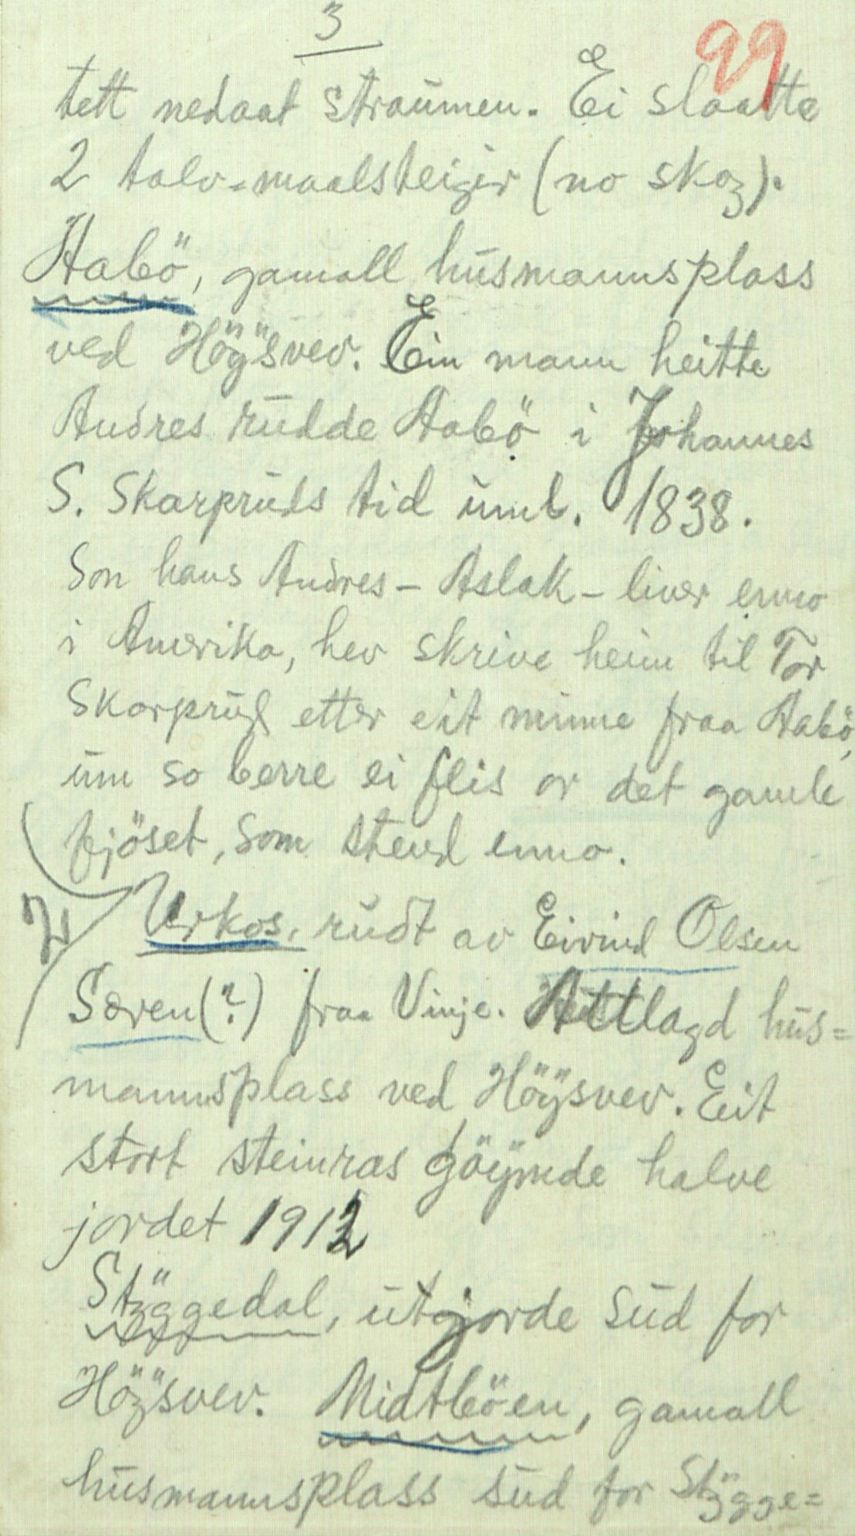 3
99
tett nedaat straumen. Ei slaatte
2 talv-maalsteigir (no skog).
Aabö, gamall husmannsplass
ved Höÿsvev. Ein mann heitte
Andres rudde Aabö i Johannes
S. Skarpruds tid uml. 1838.
Son hans Andres – Aslak – liver enno
i Amerika, hev skrive heim til Tor
Skarprud etter eit minne fraa Aabö,
um so berre ei flis or det gamle
fjöset, som stend enno.
Urkos, rudt av Eivind Olsen
Særen(?) fraa Vinje. Attlagd hus=
mannsplass ved Höÿsvev. Eit
stort steinras göÿmde halve
jordet 1912
Stÿggedal, utgjorde sud for
Höÿsvev. Midtböen, gamall
husmannsplass sud for Stÿgge=